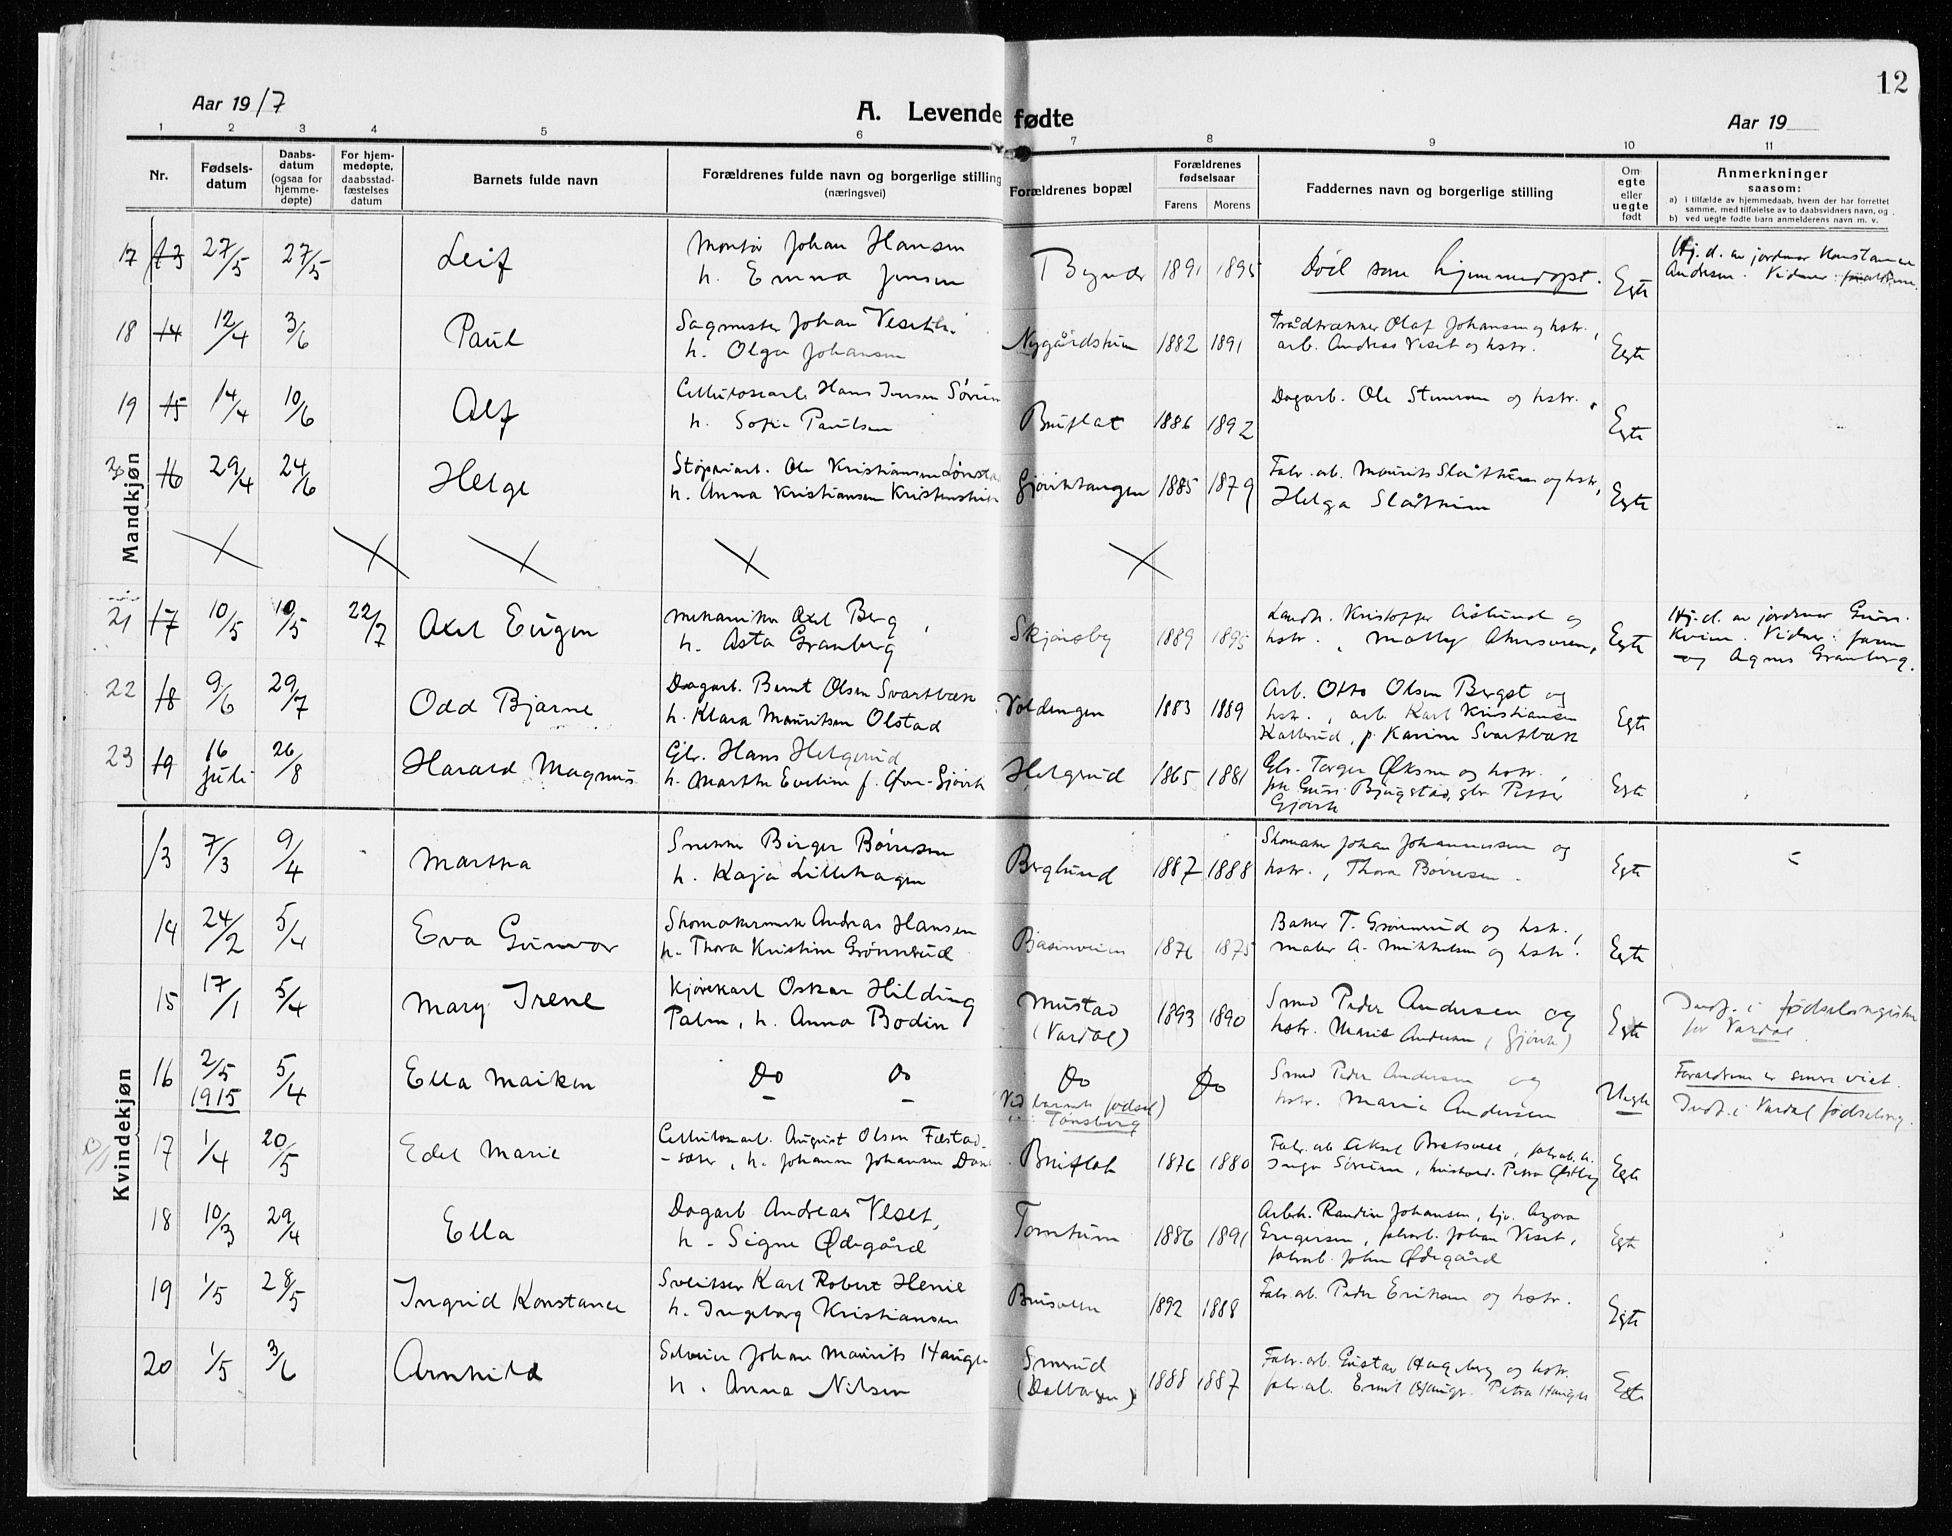 12
Aar 1917
A. Levende fødte
Aar 19
1 2 3 4 5 6 7 8 9 10 11
Nr.
Fødsels-
datum
Daabs-
datum
(ogsaa for
hjemme-
døpte)
For hjem-
medøpte,
daabsstad-
fæstelses
datum
Barnets fulde navn
Forældrenes fulde navn og borgerlige stilling
(næringsvei)
Forældrenes bopæl
Forældrenes
fødselsaar
Farens Morens
Faddernes navn og borgerlige stilling
Om
egte
eller
uegte
født
Anmerkninger
saasom:
a) i tilfælde av hjemmedaab, hvem der har forrettet
samme, med tilføielse av to daabsvidners navn, og
b) ved uegte fødte barn anmelderens navn m. v.
Mandkjøn
17 13 27/5 27/5 Leif
Montør Johan Hansen
h. Emma Jensen
1891 1895 Død som hjemmedøpt. Egte
Hj. d. av jordmor Konstance
Andersen. Vidner:
18 14 12/4 3/6 Paul
Sagmester Johan
h. Olga Johansen
1882 1891
Trådtrækker Olaf Johansen og hstr.,
arb. Andreas Veset og hstr.
Egte
19 15 14/4 10/6 Alf
Cellulosearb. Hans Jensen
h. Sofie Paulsen
Bruflat 1886 1892
Dagarb. Ole Stenersen og hstr.
Egte
20 16 29/4 24/6 Helge
Støperiarb. Ole Kristiansen
h. Anna Kristiansen
Gjøviktangen 1885 1879
Fabr. arb. Maurits Slåttheim og hstr,
Helga Slåttheim
Egte
21 17 10/5 10/5 22/7 Axel Eugen
mekaniker Axel Berg,
h. Asta Granberg
Skjønsby 1889 1895
Landh. Kristoffer Åslund og
hstr.
Egte
Hj. d. av jordmor
Kveim. Vidner: faren
og Agnes Granberg.
22 18 9/6 29/7 Odd Bjarne
Dagarb. Bernt Olsen Svartbæk
h. Klara Mauritsen Olstad
Voldengen 1883 1889
Arb. Otto Olsen Bergst og
hstr., arb. Karl Kristiansen
Kalterud, p. Karine Svartbæk
Egte
23 19 16 juli 26/8 Harald Magnus
Gbr. Hans Helgerud
h. Marthe Eveline f. Øvre-Gjøvik
Helgerud 1865 1881
Gbr. Torger Øksne og hstr.,
Gjøvik
Egte
Kvindekjøn
13 7/3 9/4 Martha
Snekker Birger Børresen
h. Kaja Lillehagen
Berglund 1887 1888
Skomaker Johan Johannessen og
hstr., Thora Børresen.
Egte
14 24/2 5/4 Eva Gunvor
Skomakermester Andreas Hansen
h. Thora Kristine Grønnerud
1876 1875
Baker T. Grønnerud og hstr.,
maler A. Mikkelsen og hstr.
Egte
15 17/1 5/4 Mary Irene
Kjørekarl Oskar Hilding
Palm, h. Anna Bodin
Mustad
(Vardal)
1893 1890
Smed Peder Andersen og
hstr. Marie Andersen (Gjøvik)
Egte
Indf. i fødselsregister
for Vardal
16 2/5 1915 5/4 Ella Maiken
Do Do
Do
(Ved barnets fødsel)
i Tønsberg
Do
Smed Peder Andersen og
hstr. Marie Andersen
Uegte
Forældrene er senere viet.
Indf. i Vardal fødselsreg.
17 1/4 20/5 Edel Marie
Cellulosearb. August Olsen Fæstad-
-sæter, h. Johanne Johansen
Bruflat 1876 1880
Fabr. arb. Aksel
Inga Sørum,
Egte
18 10/3 29/4 Ella
Dagarb. Andreas Veset,
h. Signe Ødegård
Tomtum 1886 1891
Arbeh. Randine Johansen,
fabrarb. Johan Veset,
fabrarb. John Ødegård
Egte
19 1/5 28/5 Ingrid Konstance
Sveitser Karl Robert Henie
h. Ingeborg Kristiansen
1892 1888
Fabr. arb. Peder Eriksen og hstr.
Egte
20 1/5 3/6 Arnhild
Johan Maurits
h. Anna Nilsen
Smerud
1888 1887
Fabr. arb. Gustav Hageberg og hstr.
fabr. arb. Emil
Egte